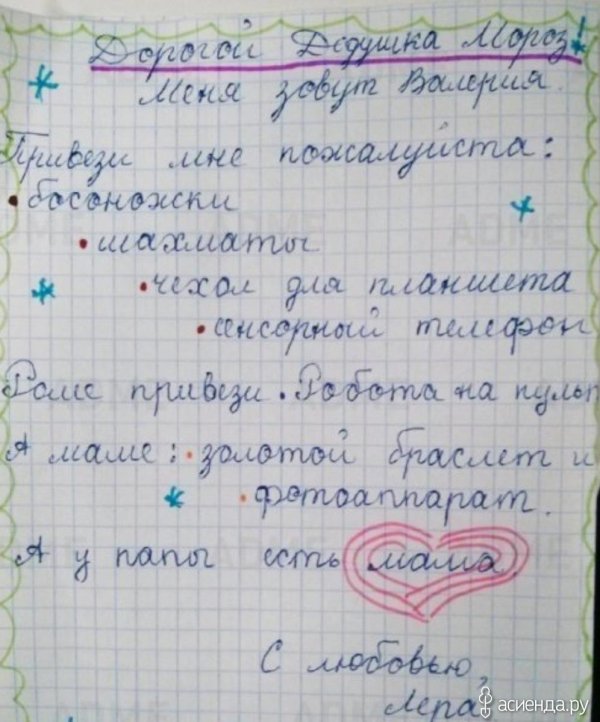 Дорогой Дедушка Мороз!
Меня зовут Валерия.
Привези мне пожалуйста:
• босоножки
• шахматы
• чехол для планшета
• сенсорный телефон
Роме привези • Робота на пульт
А маме: • золотой браслет и
• фотоаппарат.
А у папы есть мама
С любовью,
Лера
асиенда.ру